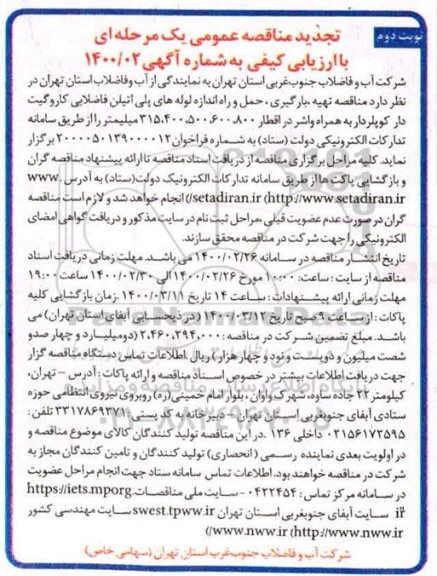 نوبت دوم
تجدید مناقصه عمومی یک مرحله ای
با ارزیابی کیفی به شماره آگهی ۱۴۰۰/۰۲
شرکت آب و فاضلاب جنوب غربی استان تهران به نمایندگی از آب و فاضلاب استان تهران در
نظر دارد مناقصه تهیه ،بارگیری ، حمل و راه اندازه لوله های پلی اتیلن فاضلابی کاروگیت
دار کوپلردار به همراه واشر در اقطار ۸۰۰-۶۰۰-۵۰۰-۴۰۰-۳۱۵ میلیمتر را از طریق سامانه
تدارکات الکترونیکی دولت (ستاد) به شماره فراخوان ۲۰۰۰۰۰۵۰۱۳۹۰۰۰۰۱۲ برگزار
نماید. کلیه مراحل برگزاری مناقصه از دریافت اسناد مناقصه تا ارائه پیشنهاد مناقصه گران
و بازگشایی پاکت ها از طریق سامانه تدارکات الکترونیک دولت(ستاد) به آدرس www.
setadiran.ir (http://www.setadiran.ir/) انجام خواهد شد و لازم است مناقصه
گران در صورت عدم عضویت قبلی ،مراحل ثبت نام در سایت مذکور و دریافت گواهی امضای
الکترونیکی را جهت شرکت در مناقصه محقق سازند.
تاریخ انتشار مناقصه در سامانه ۱۴۰۰/۰۲/۲۶ می باشد. مهلت زمانی دریافت اسناد
مناقصه از سایت : ساعت: ۱۰:۰۰ مورخ ۱۴۰۰/۰۲/۲۶ الی ۱۴۰۰/۰۲/۳۰ ساعت ۱۹:۰۰
مهلت زمانی ارائه پیشنهادات : ساعت ۱۴ تاریخ ۱۴۰۰/۰۳/۱۱ .زمان بازگشایی کلیه
پاکات : از ساعت ۹ صبح تاریخ ۱۴۰۰/۰۳/۱۲ (در ذیحسابی آبفای استان تهران) می
باشد. مبلغ تضمین شرکت در مناقصه : ۲.۴۶۰.۲۹۴.۰۰۰ (دو میلیارد و چهار صدو
شصت میلیون و دویست و نود و چهار هزار) ریال اطلاعات تماس دستگاه مناقصه گزار
جهت دریافت اطلاعات بیشتر در خصوص اسناد مناقصه و ارائه پاکات : آدرس – تهران،
کیلومتر ۲۲ جاده ساوه، شهرک واوان ، بلوار امام خمینی(ره) روبروی نیروی انتظامی حوزه
ستادی آبفای جنوبغربی استان تهران – دبیرخانه به کد پستی ۳۳۱۷۸۶۹۳۷۱ تلفن :
۰۲۱۵۶۱۷۲۵۹۵ داخلی ۱۳۶ .در این مناقصه تولید کنندگان کالای موضوع مناقصه و
در اولویت بعدی نماینده رسمی ( انحصاری) تولید کنندگان و تامین کنندگان مجاز به
شرکت در مناقصه خواهند بود. اطلاعات تماس سامانه ستاد جهت انجام مراحل عضویت
در سامانه مرکز تماس : ۰۴۲۲۴۵۴ – سایت ملی مناقصات https://iets.mporg.
ir سایت آبفای جنوبغربی استان تهران swest.tpww.ir سایت مهندسی کشور
www.nww.ir (http://www.nww.ir/)
شرکت آب و فاضلاب جنوب غرب استان تهران (سهامی خاص)